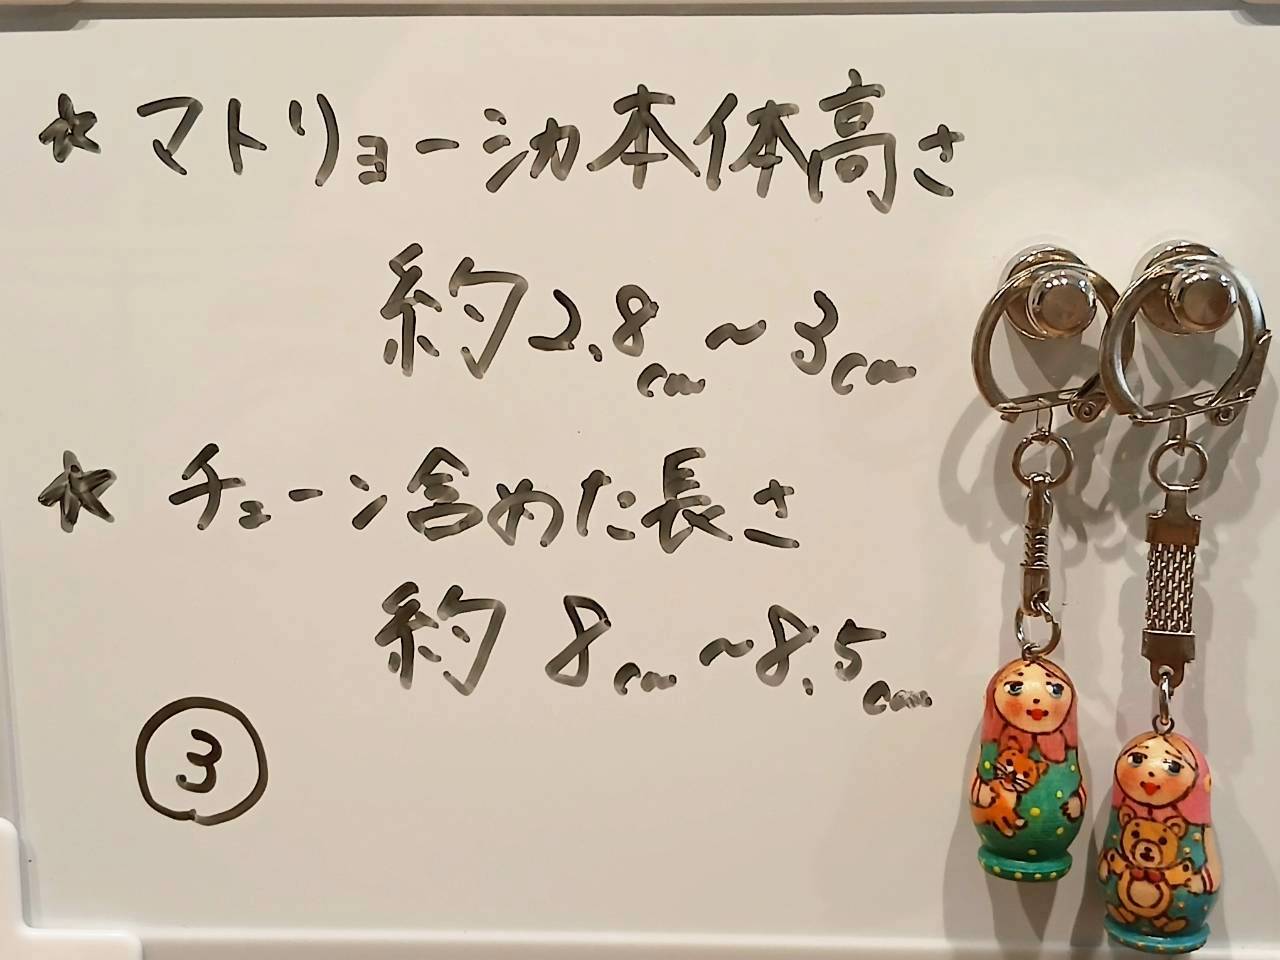 ★ マトリョーシカ本体高さ
約2.8cm～3cm
★ チェーン含めた長さ
約8cm～8.5cm
③